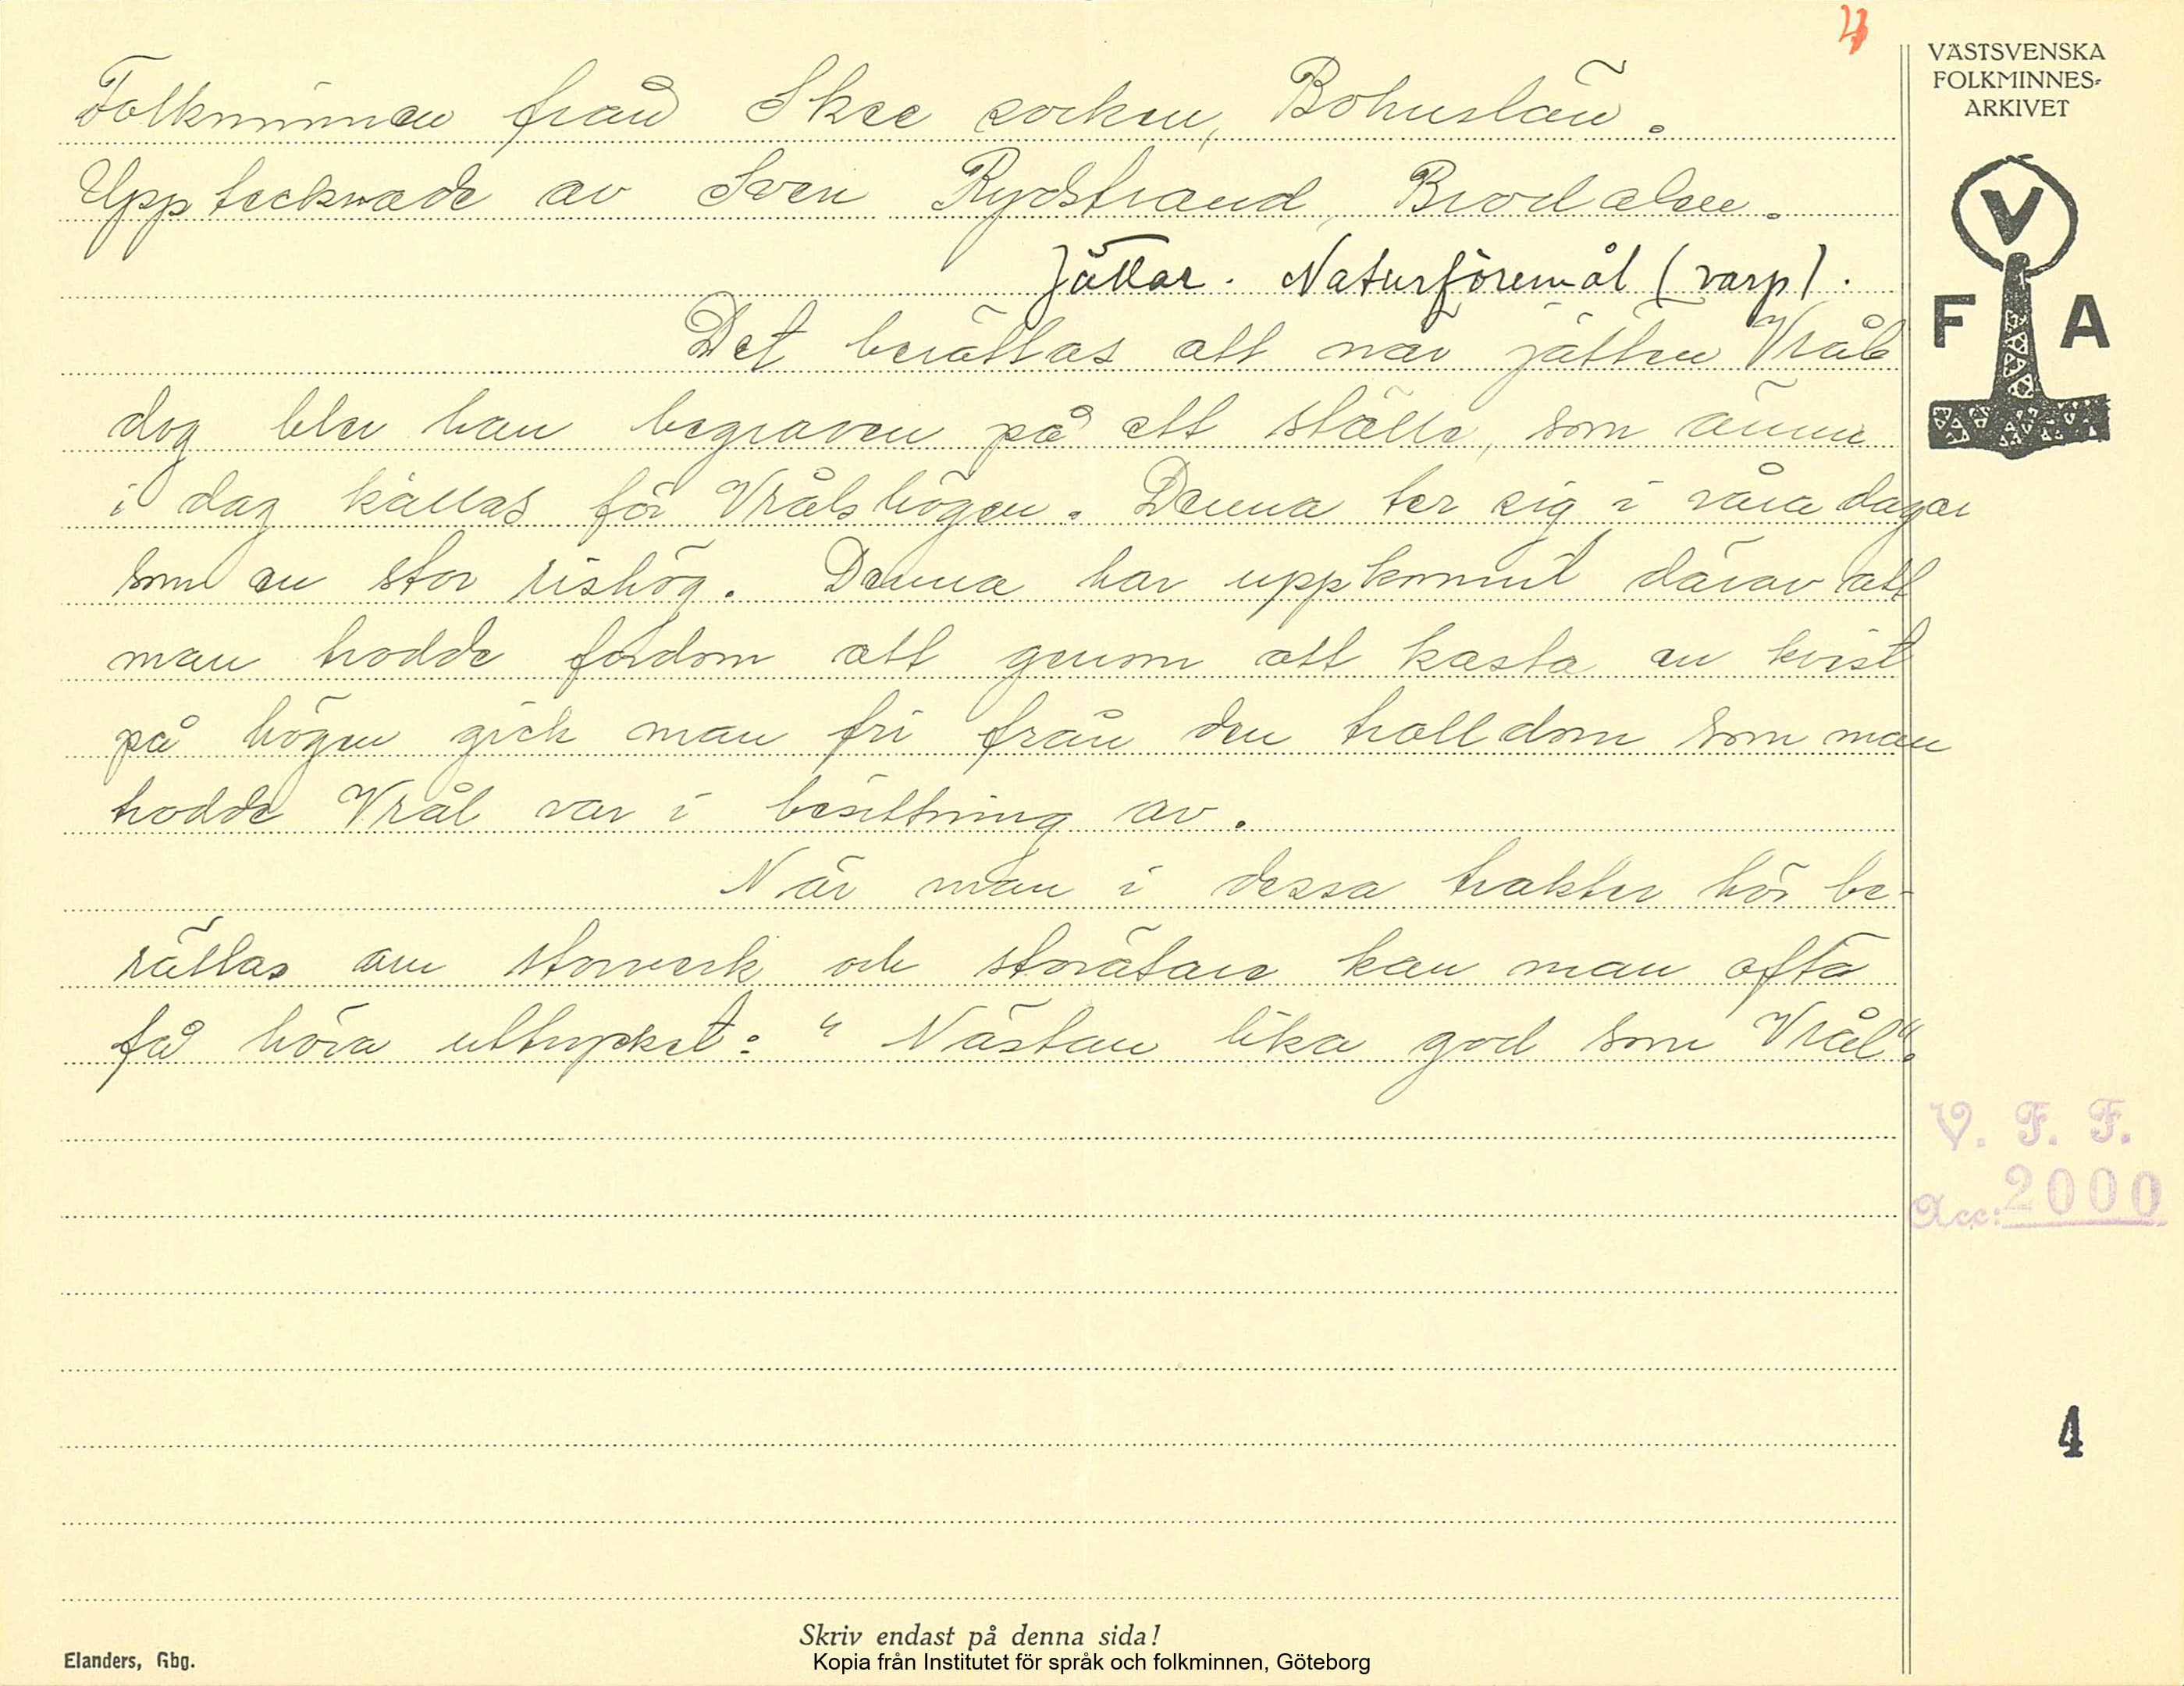 4
VÄSTSVENSKA
FOLKMINNES-
ARKIVET
V
F A
Folkminnen från Skee socken, Bohuslän.
Upptecknade av Sven Rydstrand, Brodalen.
Jättar. Naturföremål (varp).
Det berättas att när jätten Vrål
dog blev han begraven på ett ställe, som ännu
i dag kallas för Vrålshögen. Denna ter sig i våra dagar
som en stor rishög. Denna har uppkommit därav att
man trodde fordom att genom att kasta en kvist
på högen gick man fri från den trolldom som man
trodde Vrål var i besittning av.
När man i dessa trakter hör be-
rättas om storverk och storätare kan man ofta
få höra uttrycket: "Nästan lika god som Vrål".
V. F. F.
Acc: 2000
4
Skriv endast på denna sida!
Elanders, Gbg.
Kopia från Institutet för språk och folkminnen, Göteborg